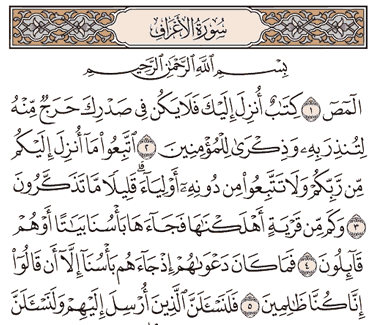 سُورَةُ الأَعْرَافِ
بِسْمِ ٱللَّهِ ٱلرَّحْمَٰنِ ٱلرَّحِيمِ
الٓمٓصٓ ١ كِتَٰبٌ أُنزِلَ إِلَيْكَ فَلَا يَكُن فِى صَدْرِكَ حَرَجٌ مِّنْهُ
لِتُنذِرَ بِهِۦ وَذِكْرَىٰ لِلْمُؤْمِنِينَ ٢ ٱتَّبِعُوا۟ مَآ أُنزِلَ إِلَيْكُم
مِّن رَّبِّكُمْ وَلَا تَتَّبِعُوا۟ مِن دُونِهِۦٓ أَوْلِيَآءَ ۗ قَلِيلًا مَّا تَذَكَّرُونَ
٣ وَكَم مِّن قَرْيَةٍ أَهْلَكْنَٰهَا فَجَآءَهَا بَأْسُنَا بَيَٰتًا أَوْ هُمْ
قَآئِلُونَ ٤ فَمَا كَانَ دَعْوَىٰهُمْ إِذْ جَآءَهُم بَأْسُنَآ إِلَّآ أَن قَالُوٓا۟
إِنَّا كُنَّا ظَٰلِمِينَ ٥ فَلَنَسْـَٔلَنَّ ٱلَّذِينَ أُرْسِلَ إِلَيْهِمْ وَلَنَسْـَٔلَنَّ